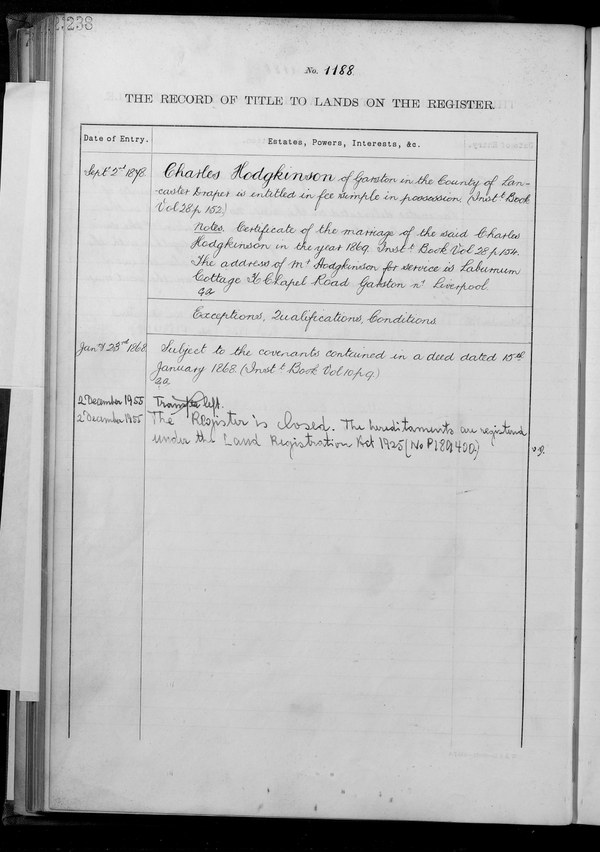 238
No. 1188
THE RECORD OF TITLE TO LANDS ON THE REGISTER.
Date of Entry.
Estates, Powers, Interests, &c.
Sept. 2nd 1878 Charles Hodgkinson of Garston in the County of Lan-
caster Draper is entitled in fee simple in possession (Instt. Book
Vol 28 p 152)
Notes. Certificate of the marriage of the said Charles
Hodgkinson in the year 1869. Instt. Book Vol 28 p. 154.
The address of Mr Hodgkinson for service is Laburnum
Cottage Chapel Road Garston nr Liverpool.
Exceptions, Qualifications, Conditions
Jany 23rd 1868 Subject to the covenants contained in a deed dated 15th
January 1868 (Instt Book Vol 10 p 9.)
2 December 1955 Transfer left.
2 December 1955 The Register is closed. The hereditaments are registered
under the Land Registration Act 1925 (No P189400)